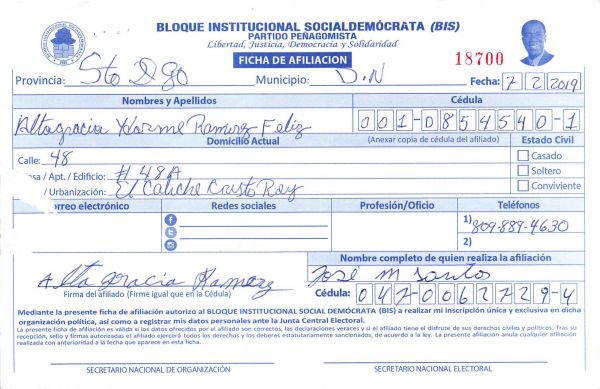 BLOQUE INSTITUCIONAL SOCIALDEMÓCRATA (BIS)
PARTIDO PEÑAGOMISTA
Libertad, Justicia, Democracia y Solidaridad
FICHA DE AFILIACION
18700
Provincia: Sto Dgo Municipio: D.N Fecha: 7 2 2019
Nombres y Apellidos Cédula
Altagracia Ramirez Feliz 001-0854540-1
Domicilio Actual (Anexar copia de cédula del afiliado) Estado Civil
Calle: 48 Casado
sa / Apt. / Edificio: # 48A Soltero
/ Urbanización: El Caliche Cristo Rey Conviviente
rreo electrónico Redes sociales Profesión/Oficio Teléfonos
1) 809-889-4630
2)
Nombre completo de quien realiza la afiliación
Altagracia Ramerez José M Santos
Firma del afiliado (Firme igual que en la Cédula) Cédula: 047-0067229-4
Mediante la presente ficha de afiliación autorizo al BLOQUE INSTITUCIONAL SOCIAL DEMÓCRATA (BIS) a realizar mi inscripción única y exclusiva en dicha
organización política, así como a registrar mis datos personales ante la Junta Central Electoral.
La presente ficha de afiliación es válida si los datos ofrecidos por el afiliado son correctos, las declaraciones veraces y si el afiliado tiene el disfrute de sus derechos civiles y políticos. Tras su
recepción, sello y firmas autorizadas el afiliado ejercerá todos los derechos y los deberes estatutariamente sancionados, de acuerdo a la ley. La presente afiliación anula cualquier afiliación
realizada con anterioridad a la fecha que aparece en esta ficha.
SECRETARIO NACIONAL DE ORGANIZACIÓN SECRETARIO NACIONAL ELECTORAL